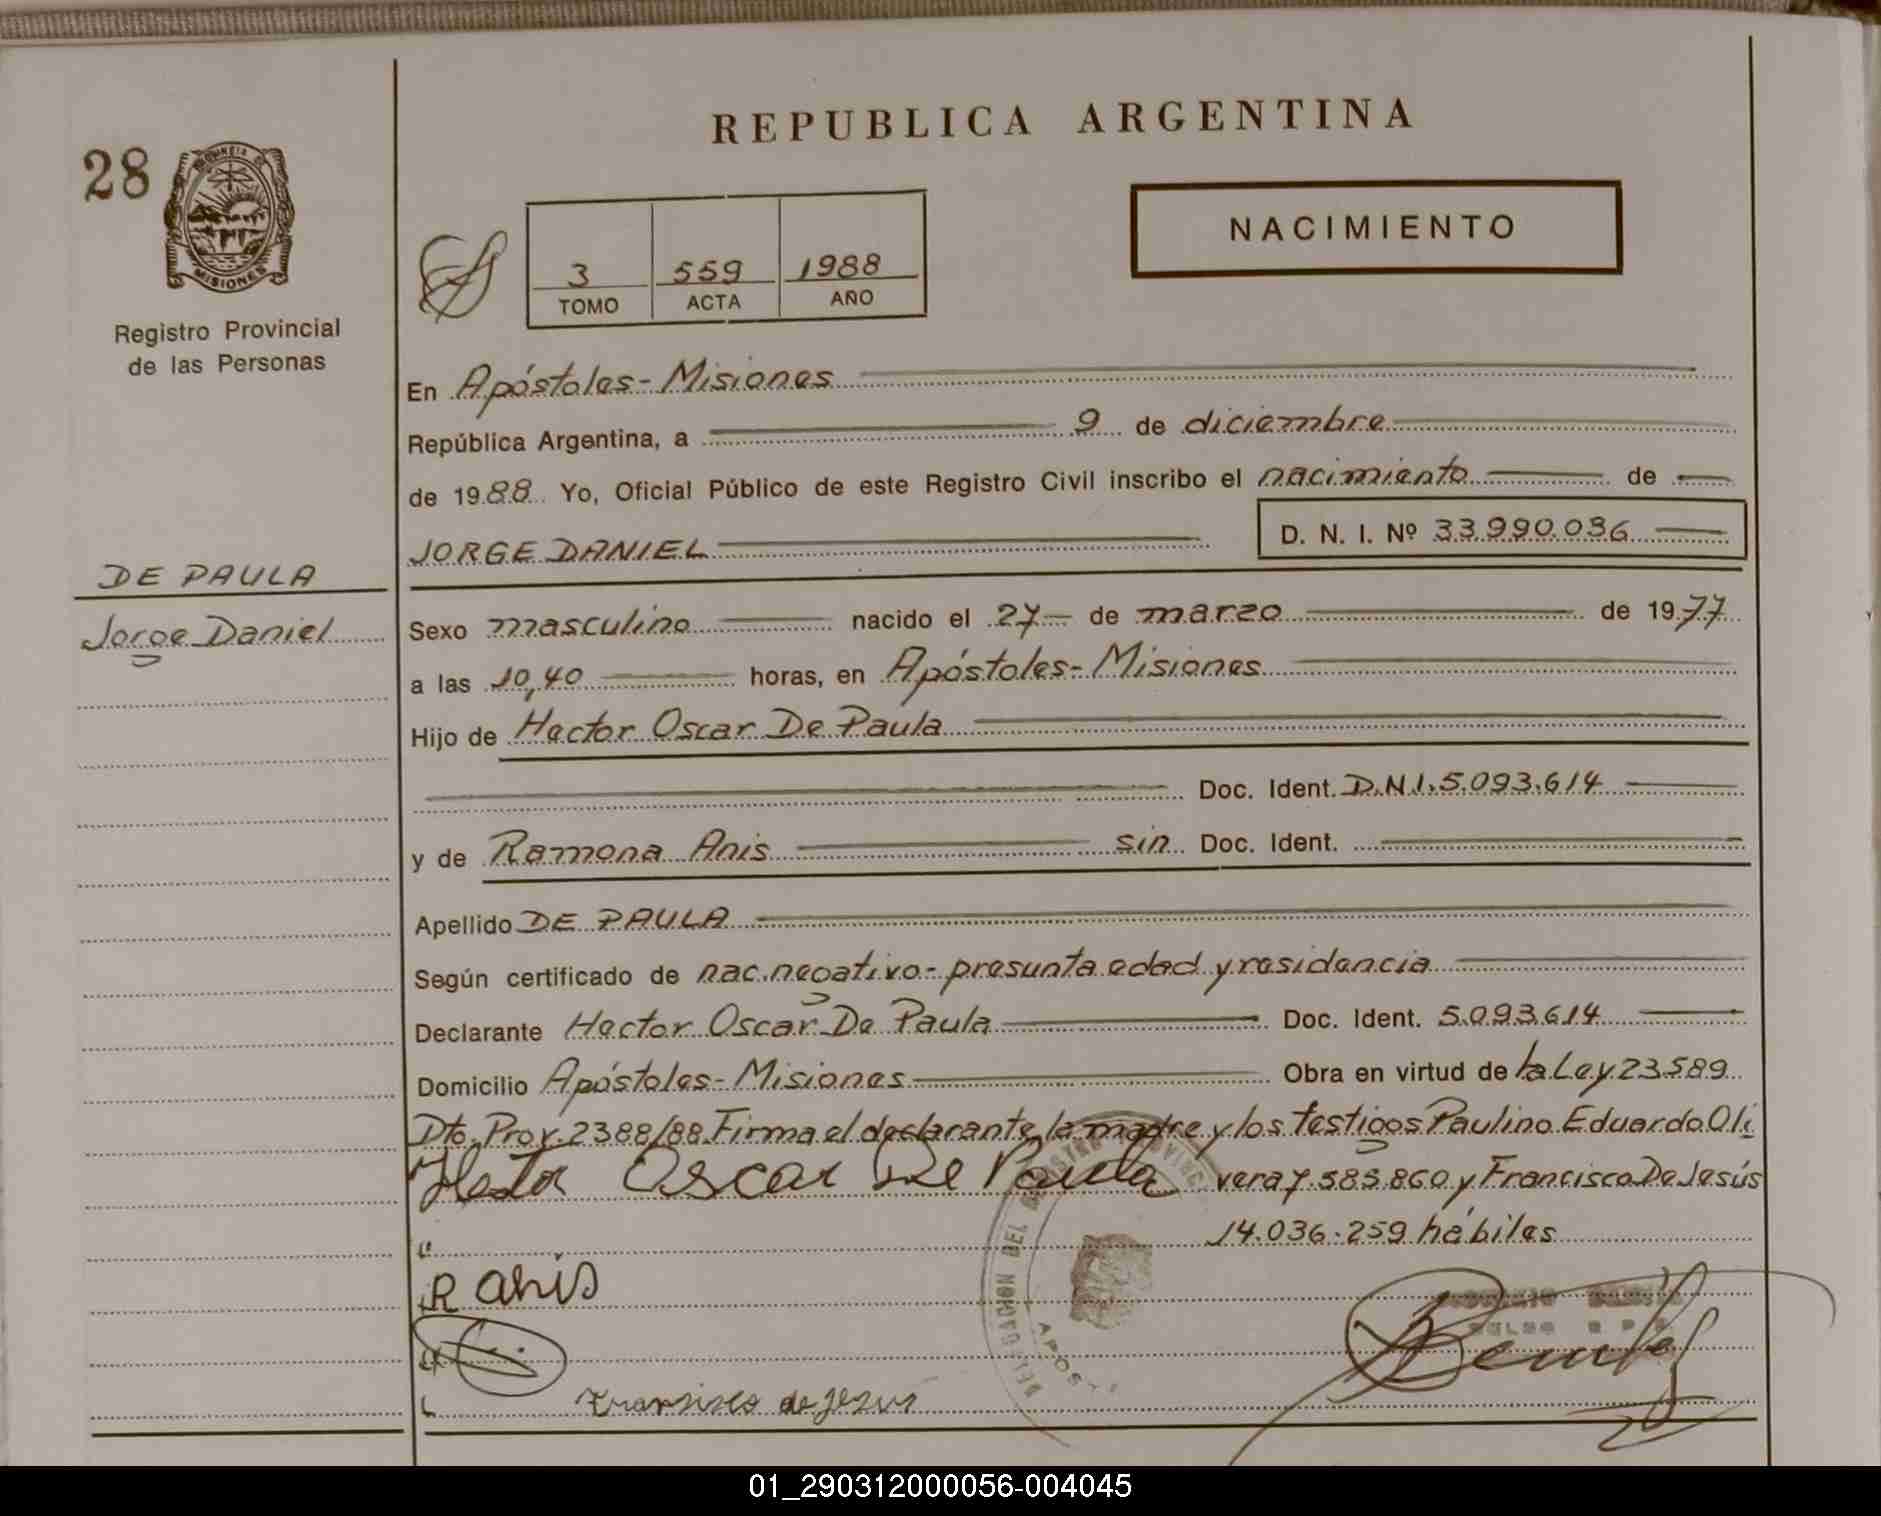 REPUBLICA ARGENTINA
28
PROVINCIA DE
MISIONES
Registro Provincial
de las Personas
NACIMIENTO
3 559 1988
TOMO ACTA AÑO
En Apóstoles - Misiones
República Argentina, a 9 de diciembre
de 1988 Yo, Oficial Público de este Registro Civil inscribo el nacimiento de
JORGE DANIEL D. N. I. Nº 33.990.036
DE PAULA
Jorge Daniel
Sexo masculino nacido el 27 de marzo de 1977
a las 10,40 horas, en Apóstoles - Misiones
Hijo de Hector Oscar De Paula
Doc. Ident. D.N.I. 5.093.614
y de Ramona Anis sin Doc. Ident.
Apellido DE PAULA
Según certificado de nac. negativo - presunta edad y residencia
Declarante Hector Oscar De Paula Doc. Ident. 5.093.614
Domicilio Apóstoles - Misiones Obra en virtud de la Ley 23.589
Dto. Prov. 2388/88. Firma el declarante, la madre y los testigos Paulino Eduardo Oli
vera 7.585.860 y Francisco De Jesús
Hector Oscar De Paula
14.036.259 hábiles
R anis
Fransisco de Jesus
DELEGACION DEL REGISTRO PROVINC
APOST
01_290312000056-004045